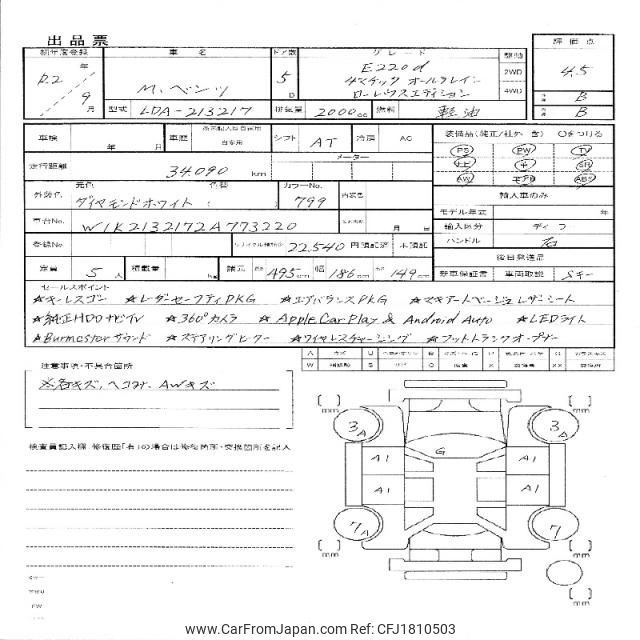 出品票
初年度登録 車名 ドア数 グレード 駆動 評価点
R2年9月 M.ベンツ 5D E220d 4マチック オールテレイン 2WD 4WD 4.5
ローレウスエディション
B
型式 LDA-213217 排気量 2000cc 燃料 軽油 B
車検 年 月 車歴 自家用 シフト AT 冷房 AC 装備品(純正/社外 含) ○をつける
PS PW TV
走行距離 34,090 km メーター SR
AW ABS
外装色 元色 ダイヤモンドホワイト ( ) カラーNo. 799 内装色 輸入車のみ
モデル年式 年
車台No. W1K2132172A773220 月 日 輸入区分 ディーラ
登録No. リサイクル預託金 22,540 円預託済 未預託 ハンドル 右
後日発送品
定員 5人 積載量 kg 諸元 495cm 幅 186cm 149cm 新車保証書 車両取説 Sキー
セールスポイント
★キーレスゴー ★レーダーセーフティPKG ★エアバランスPKG ★マキアートベージュレザーシート
★純正HDDナビTV ★360°カメラ ★Apple CarPlay & Android Auto ★LEDライト
★Burmesterサウンド ★ステアリングヒーター ★ワイヤレスチャージング ★フットトランクオープナー
注意事項・不具合箇所
※各キズ、ヘコみ、AWキズ
検査員記入欄 修復歴「有」の場合は修復箇所・交換箇所を記入
mm mm
3A 3A
G
A1 A1
A1 A1
7A 7
mm mm
mm
www.CarFromJapan.com Ref: CFJ1810503